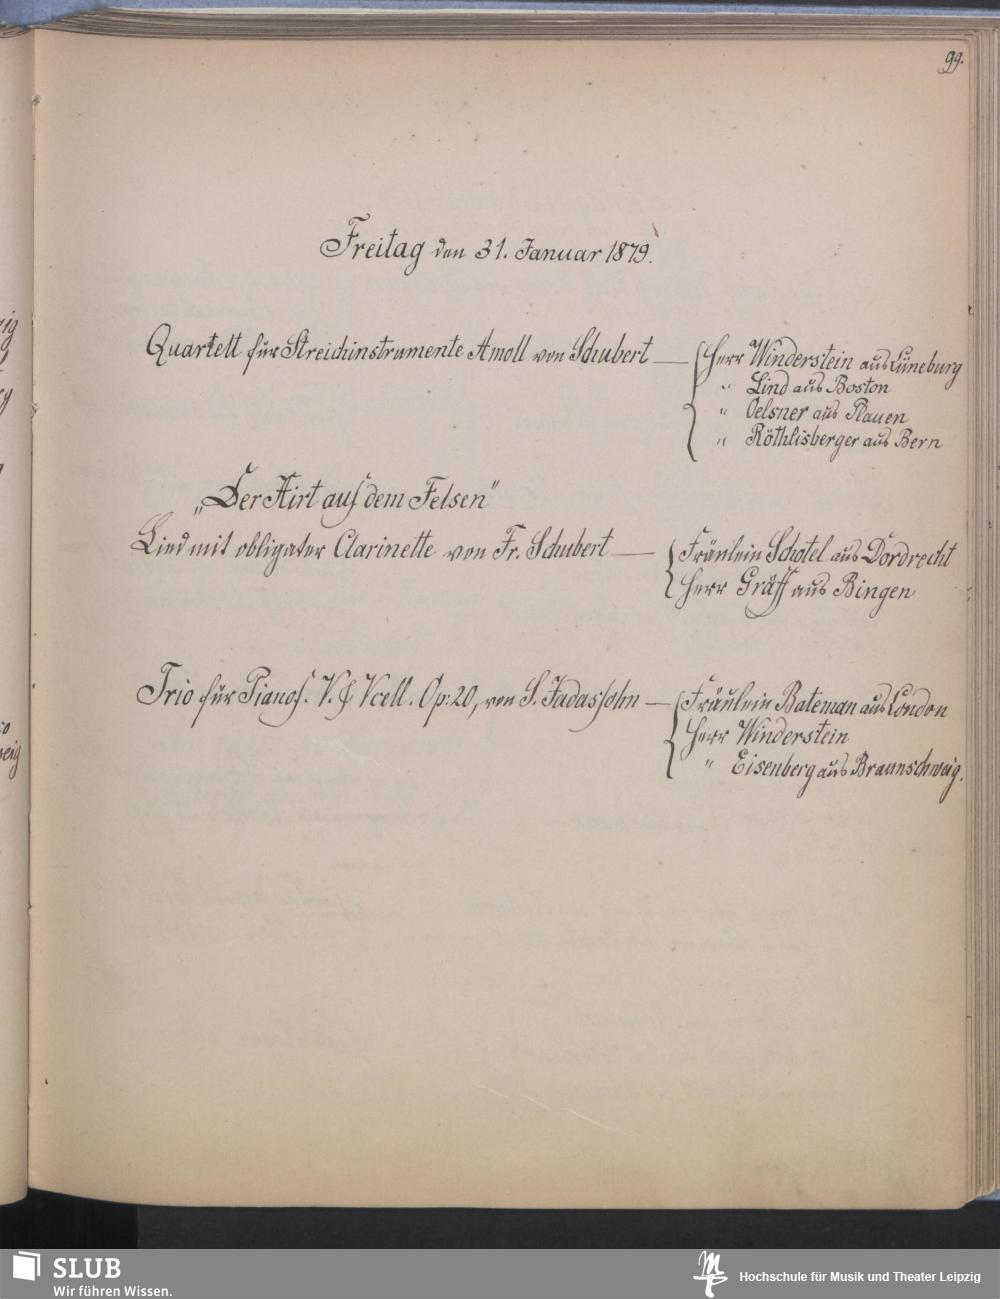 99.
Freitag den 31. Januar 1879.
Quartett für Streichinstrumente Amoll von Schubert — Herr Winderstein aus Lüneburg
" Lind aus Boston
" Oelsner aus Plauen
" Röthlisberger aus Bern
„Der Hirt auf dem Felsen"
Lied mit obligater Clarinette von Fr. Schubert — Fräulein Schotel aus Dordrecht
Herr Gräff aus Bingen
Trio für Pianof. V. & Vcell. Op: 20, von S. Jadassohn — Fräulein Bateman aus London
Herr Winderstein
" Eisenberg aus Braunschweig.
SLUB
Wir führen Wissen.
Hochschule für Musik und Theater Leipzig